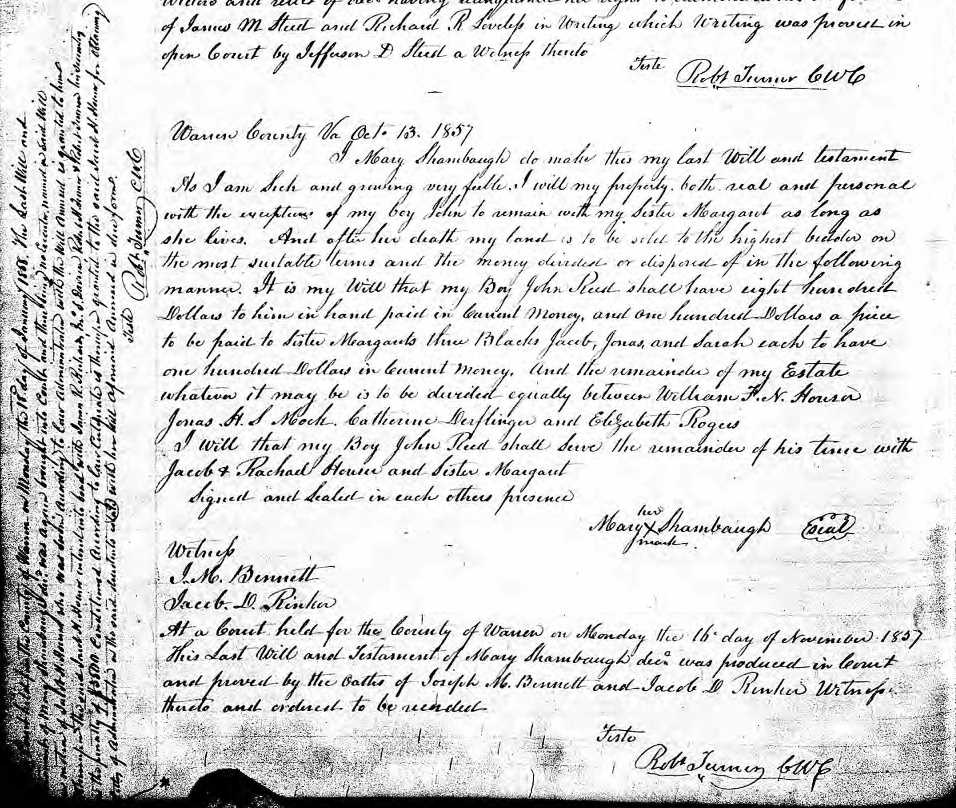 of James M Steed and Richard R Loveless in Writing which Writing was proved in
open Court by Jefferson D Steed a Witness thereto
Teste
Robt Turner CWC
Warren County Va Octo 13. 1857
I Mary Shambaugh do make this my last Will and testament
As I am Sick and growing very feeble. I will my property. both real and personal
with the exceptions of my boy John to remain with my Sister Margaret as long as
she lives. And after her death my land is to be sold to the highest bidder on
the most suitable terms and the money divided or disposed of in the following
manner. It is my Will that my Boy John Reed shall have eight hundred
Dollars to him in hand paid in Current Money, and one hundred Dollars a piece
to be paid to Sister Margarets three Blacks Jacob, Jonas, and Sarah each to have
one hundred Dollars in Current Money. And the remainder of my Estate
whatever it may be is to be divided equally between William F. N. Houser
Jonas H. S Mock. Catherine Derflinger and Elizabeth Rogers
I Will that my Boy John Reed shall Serve the remainder of his time with
Jacob & Rachael and Sister Margaret
Signed and Sealed in each others presence
her
Mary X Shambaugh seal
mark
Witness
J. M. Bennett
Jacob. D. Rinker
At a Court held for the County of Warren on Monday the 16th day of November 1857
This Last Will and Testament of Mary Shambaugh decd was produced in Court
and proved by the Oaths of Joseph M. Bennett and Jacob D Rinker Witness
thereto and ordered to be recorded
Teste
Robt Turner CWC
County of Warren on Monday the day of January 1858. The Last Will and
of Mary Shambaugh decd was again brought into Court and there being no Executor named in said Will
on the motion of who was According to Law Administration with the Will Annexed is granted to him
the penalty of $3000 Conditioned According to law Certificate is granted to the said for Obtaining
of Administration on the said decedents estate with her Will aforesaid Annexed in due form.
Teste
Robt Turner CWC